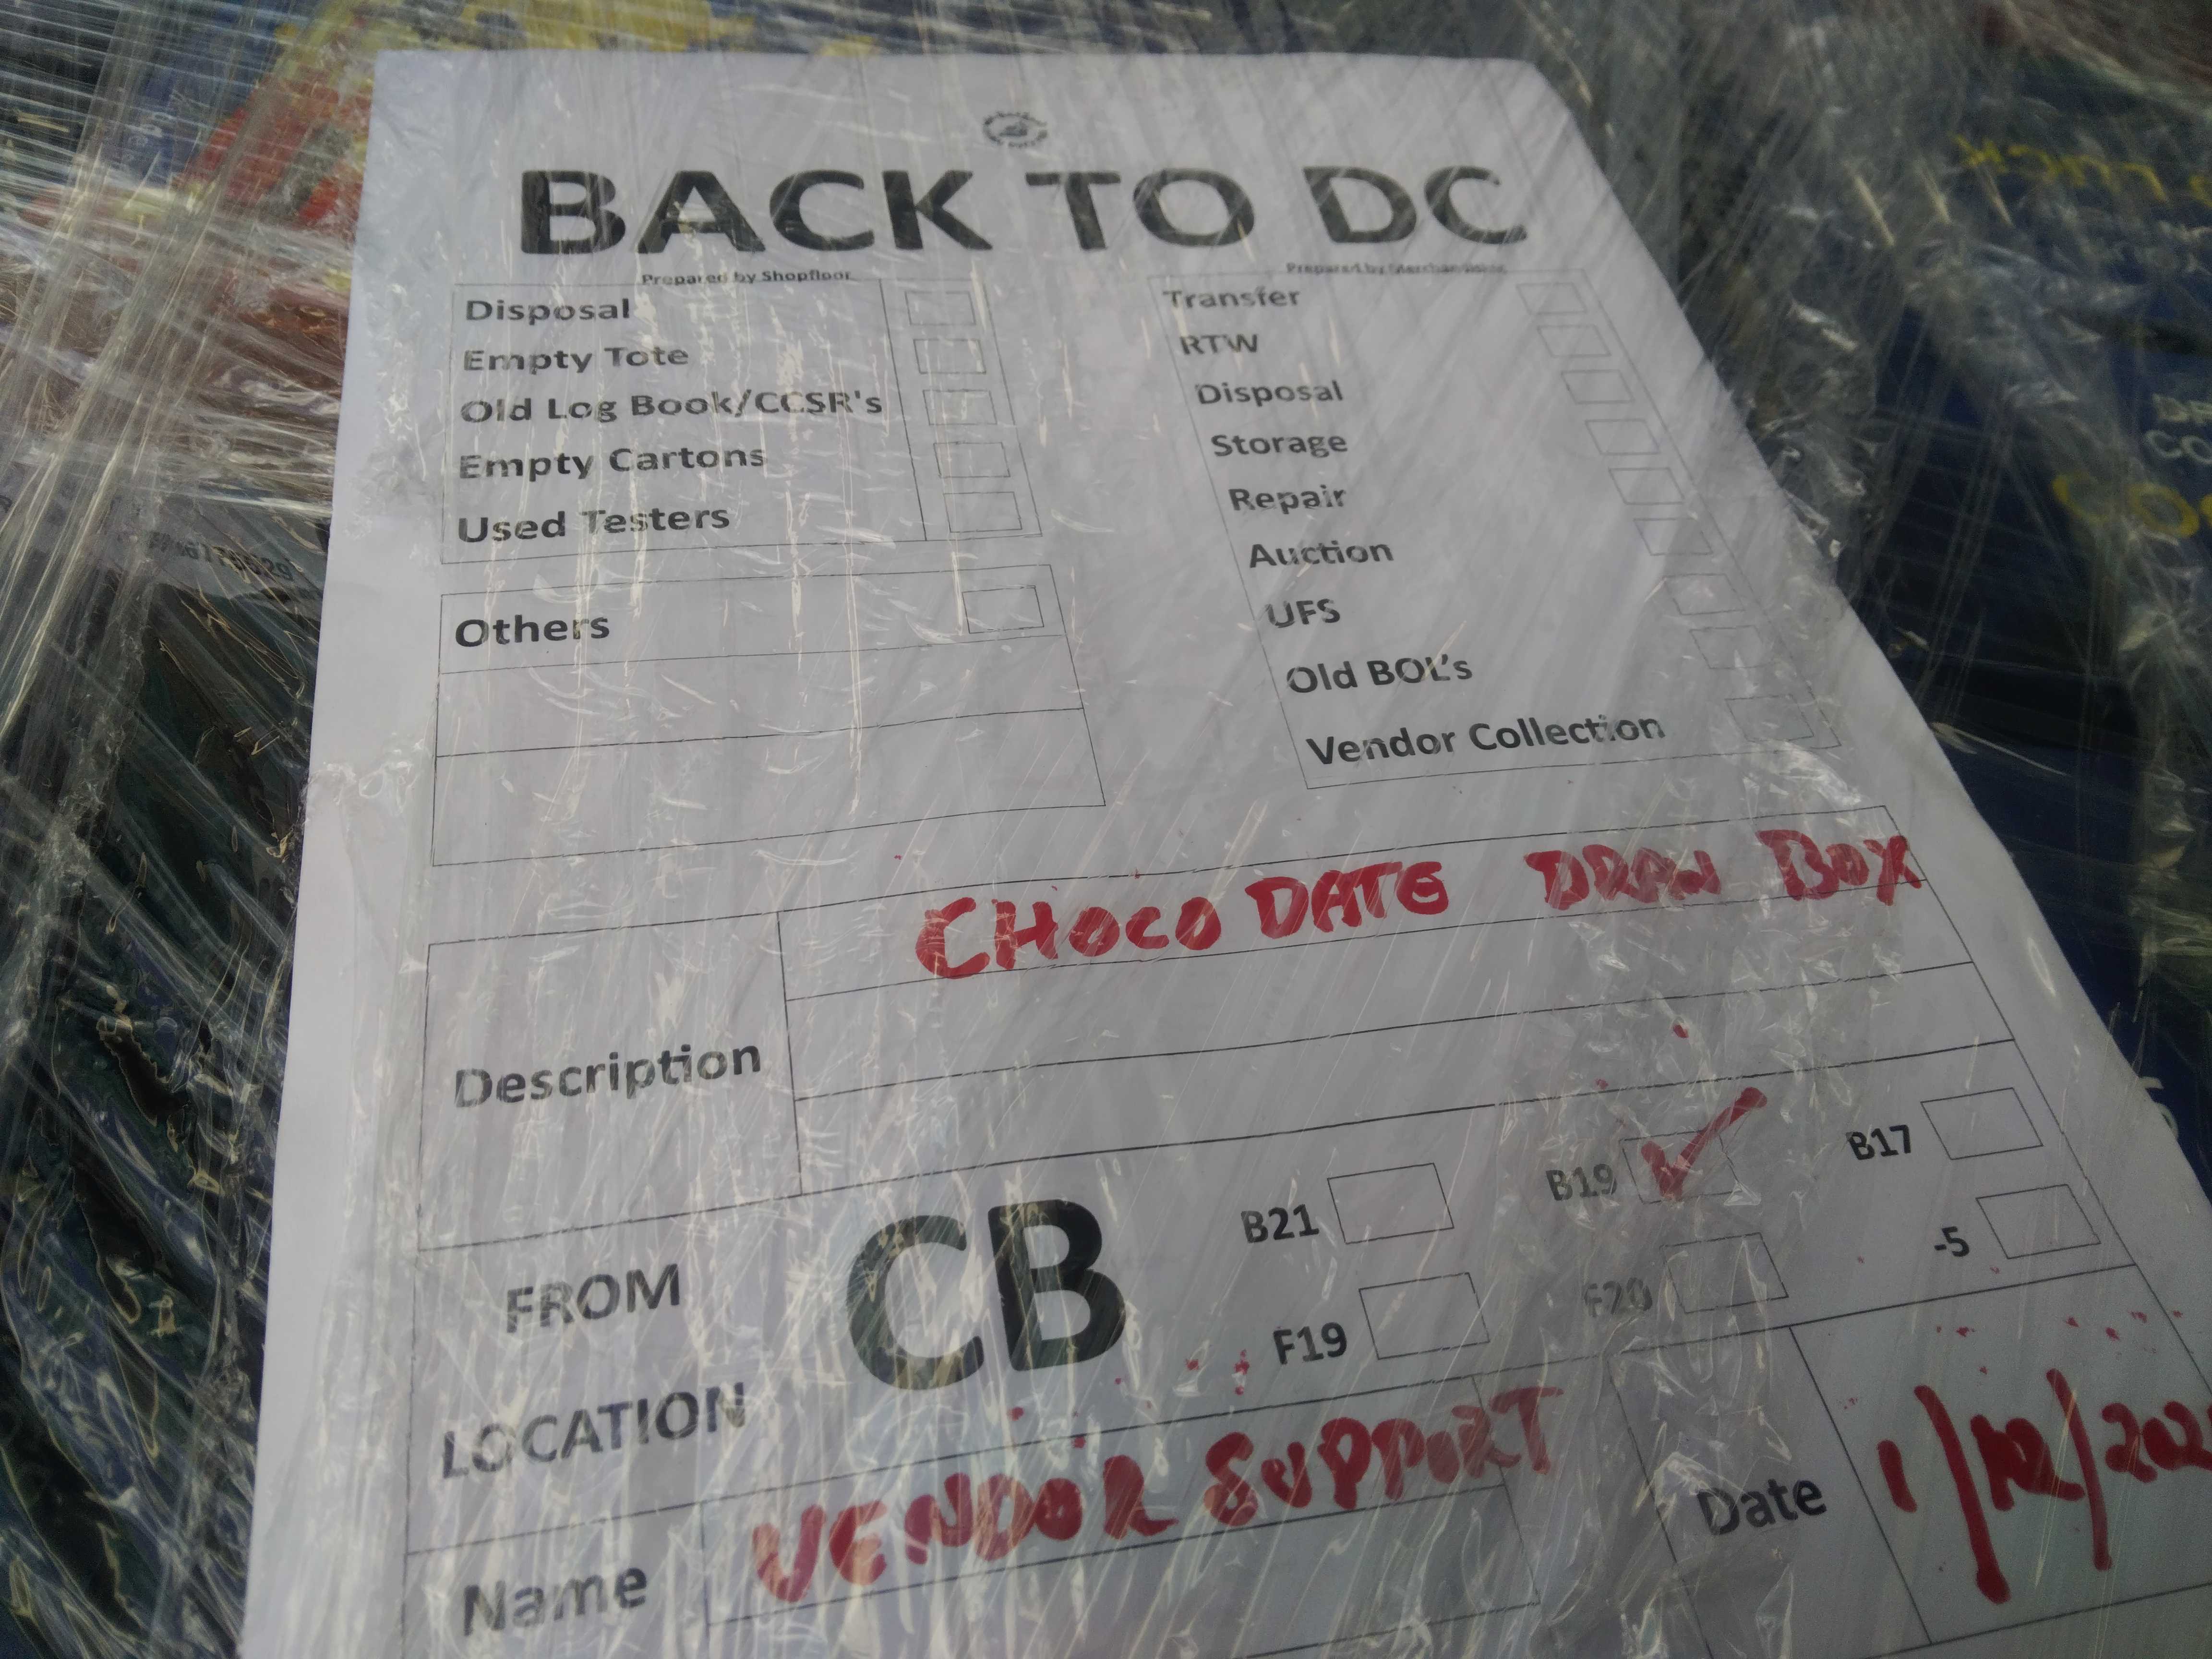 BACK TO DC
Prepared by Shopfloor
Disposal
Empty Tote
Old Log Book/CCSR's
Empty Cartons
Used Testers
Others
Prepared by Merchandising
Transfer
RTW
Disposal
Storage
Repair
Auction
UFS
Old BOL's
Vendor Collection
Description
CHOCO DATE DRAW BOX
FROM
LOCATION
CB
B21
B19
B17
F19
F20
-5
Name
VENDOR SUPPORT
Date
1/12/202